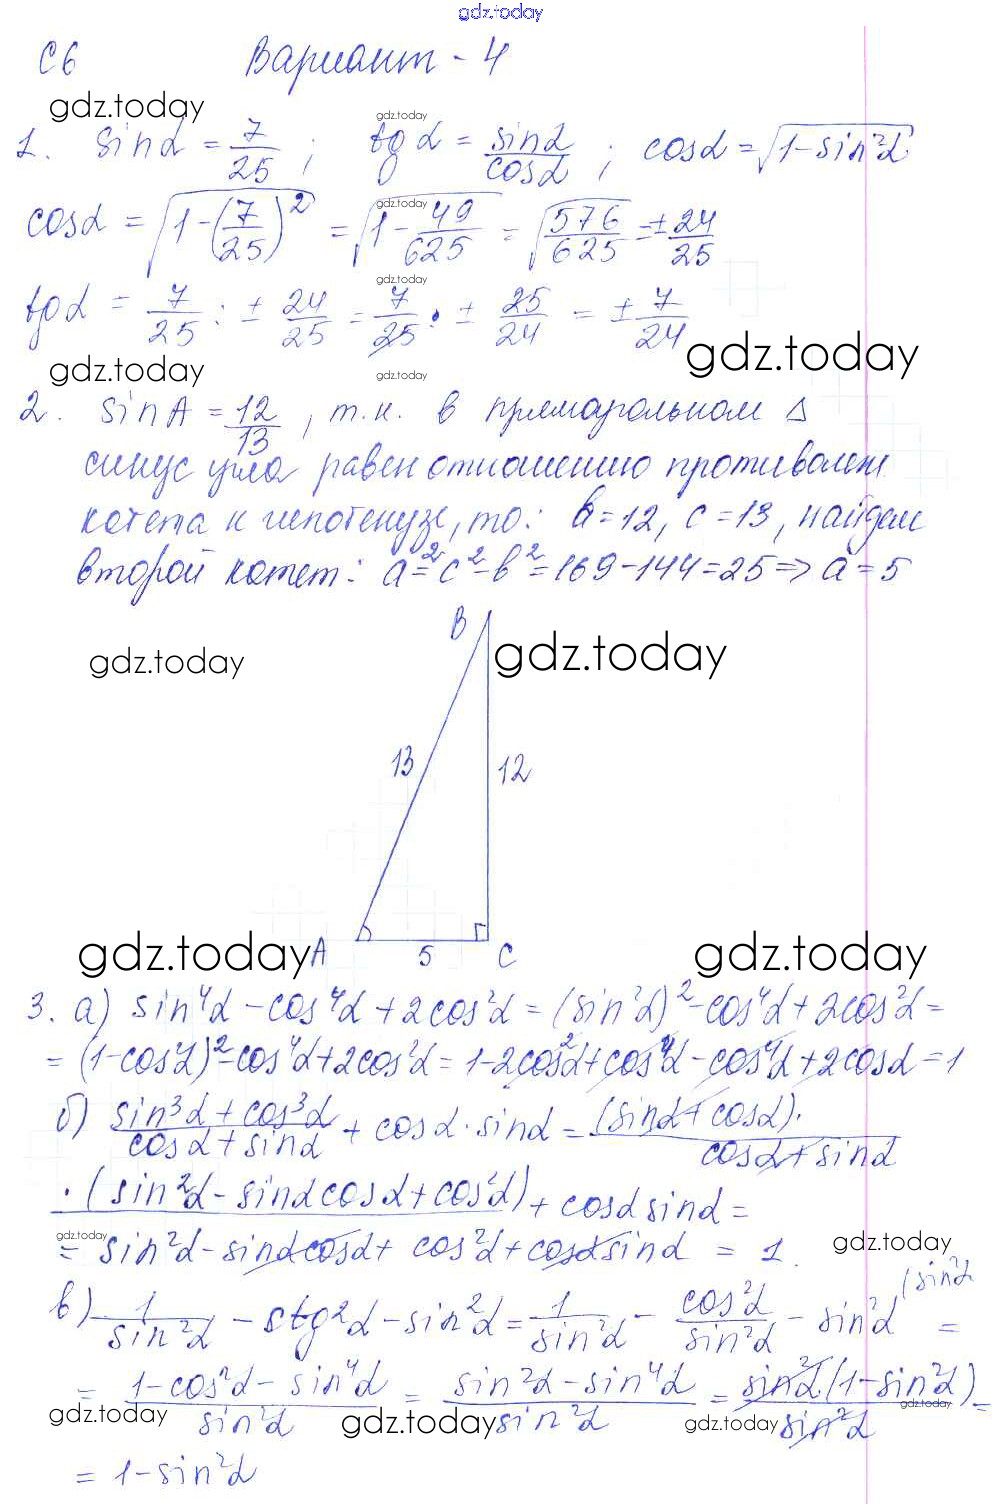 gdz.today
С6 Вариант - 4
gdz.today gdz.today
1. sinα = 7/25 ; tgα = sinα/cosα ; cosα = √(1-sin²α)
cosα = √(1-(7/25)²) = √(1-49/625) = √(576/625) = ±24/25
gdz.today
gdz.today
tgα = 7/25 : ± 24/25 = 7/25 · ± 25/24 = ± 7/24
gdz.today gdz.today gdz.today
2. sin A = 12/13, т.к. в прямоугольном Δ
синус угла равен отношению противолеж.
катета к гипотенузе, то: b = 12, c = 13, найдем
второй катет: a² = c² - b² = 169 - 144 = 25 => a = 5
B
gdz.today gdz.today
13 12
gdz.today A 5 C gdz.today
3. а) sin⁴α - cos⁴α + 2cos²α = (sin²α)² - cos⁴α + 2cos²α =
= (1-cos²α)² - cos⁴α + 2cos²α = 1-2cos²α + cos⁴α - cos⁴α + 2cosα = 1
б) (sin³α + cos³α)/(cosα + sinα) + cosα · sinα = (sinα + cosα)·/(cosα + sinα)
·(sin²α - sinαcosα + cos²α) + cosα sinα =
gdz.today = sin²α - sinαcosα + cos²α + cosαsinα = 1. gdz.today
в) 1/sin²α - ctg²α - sin²α = 1/sin²α - cos²α/sin²α - sin²α (sin²α =
= (1-cos²α - sin⁴α)/sin²α = (sin²α - sin⁴α)/sin²α = sin²α(1-sin²α)/sin²α =
gdz.today gdz.today gdz.today gdz.today
= 1 - sin²α